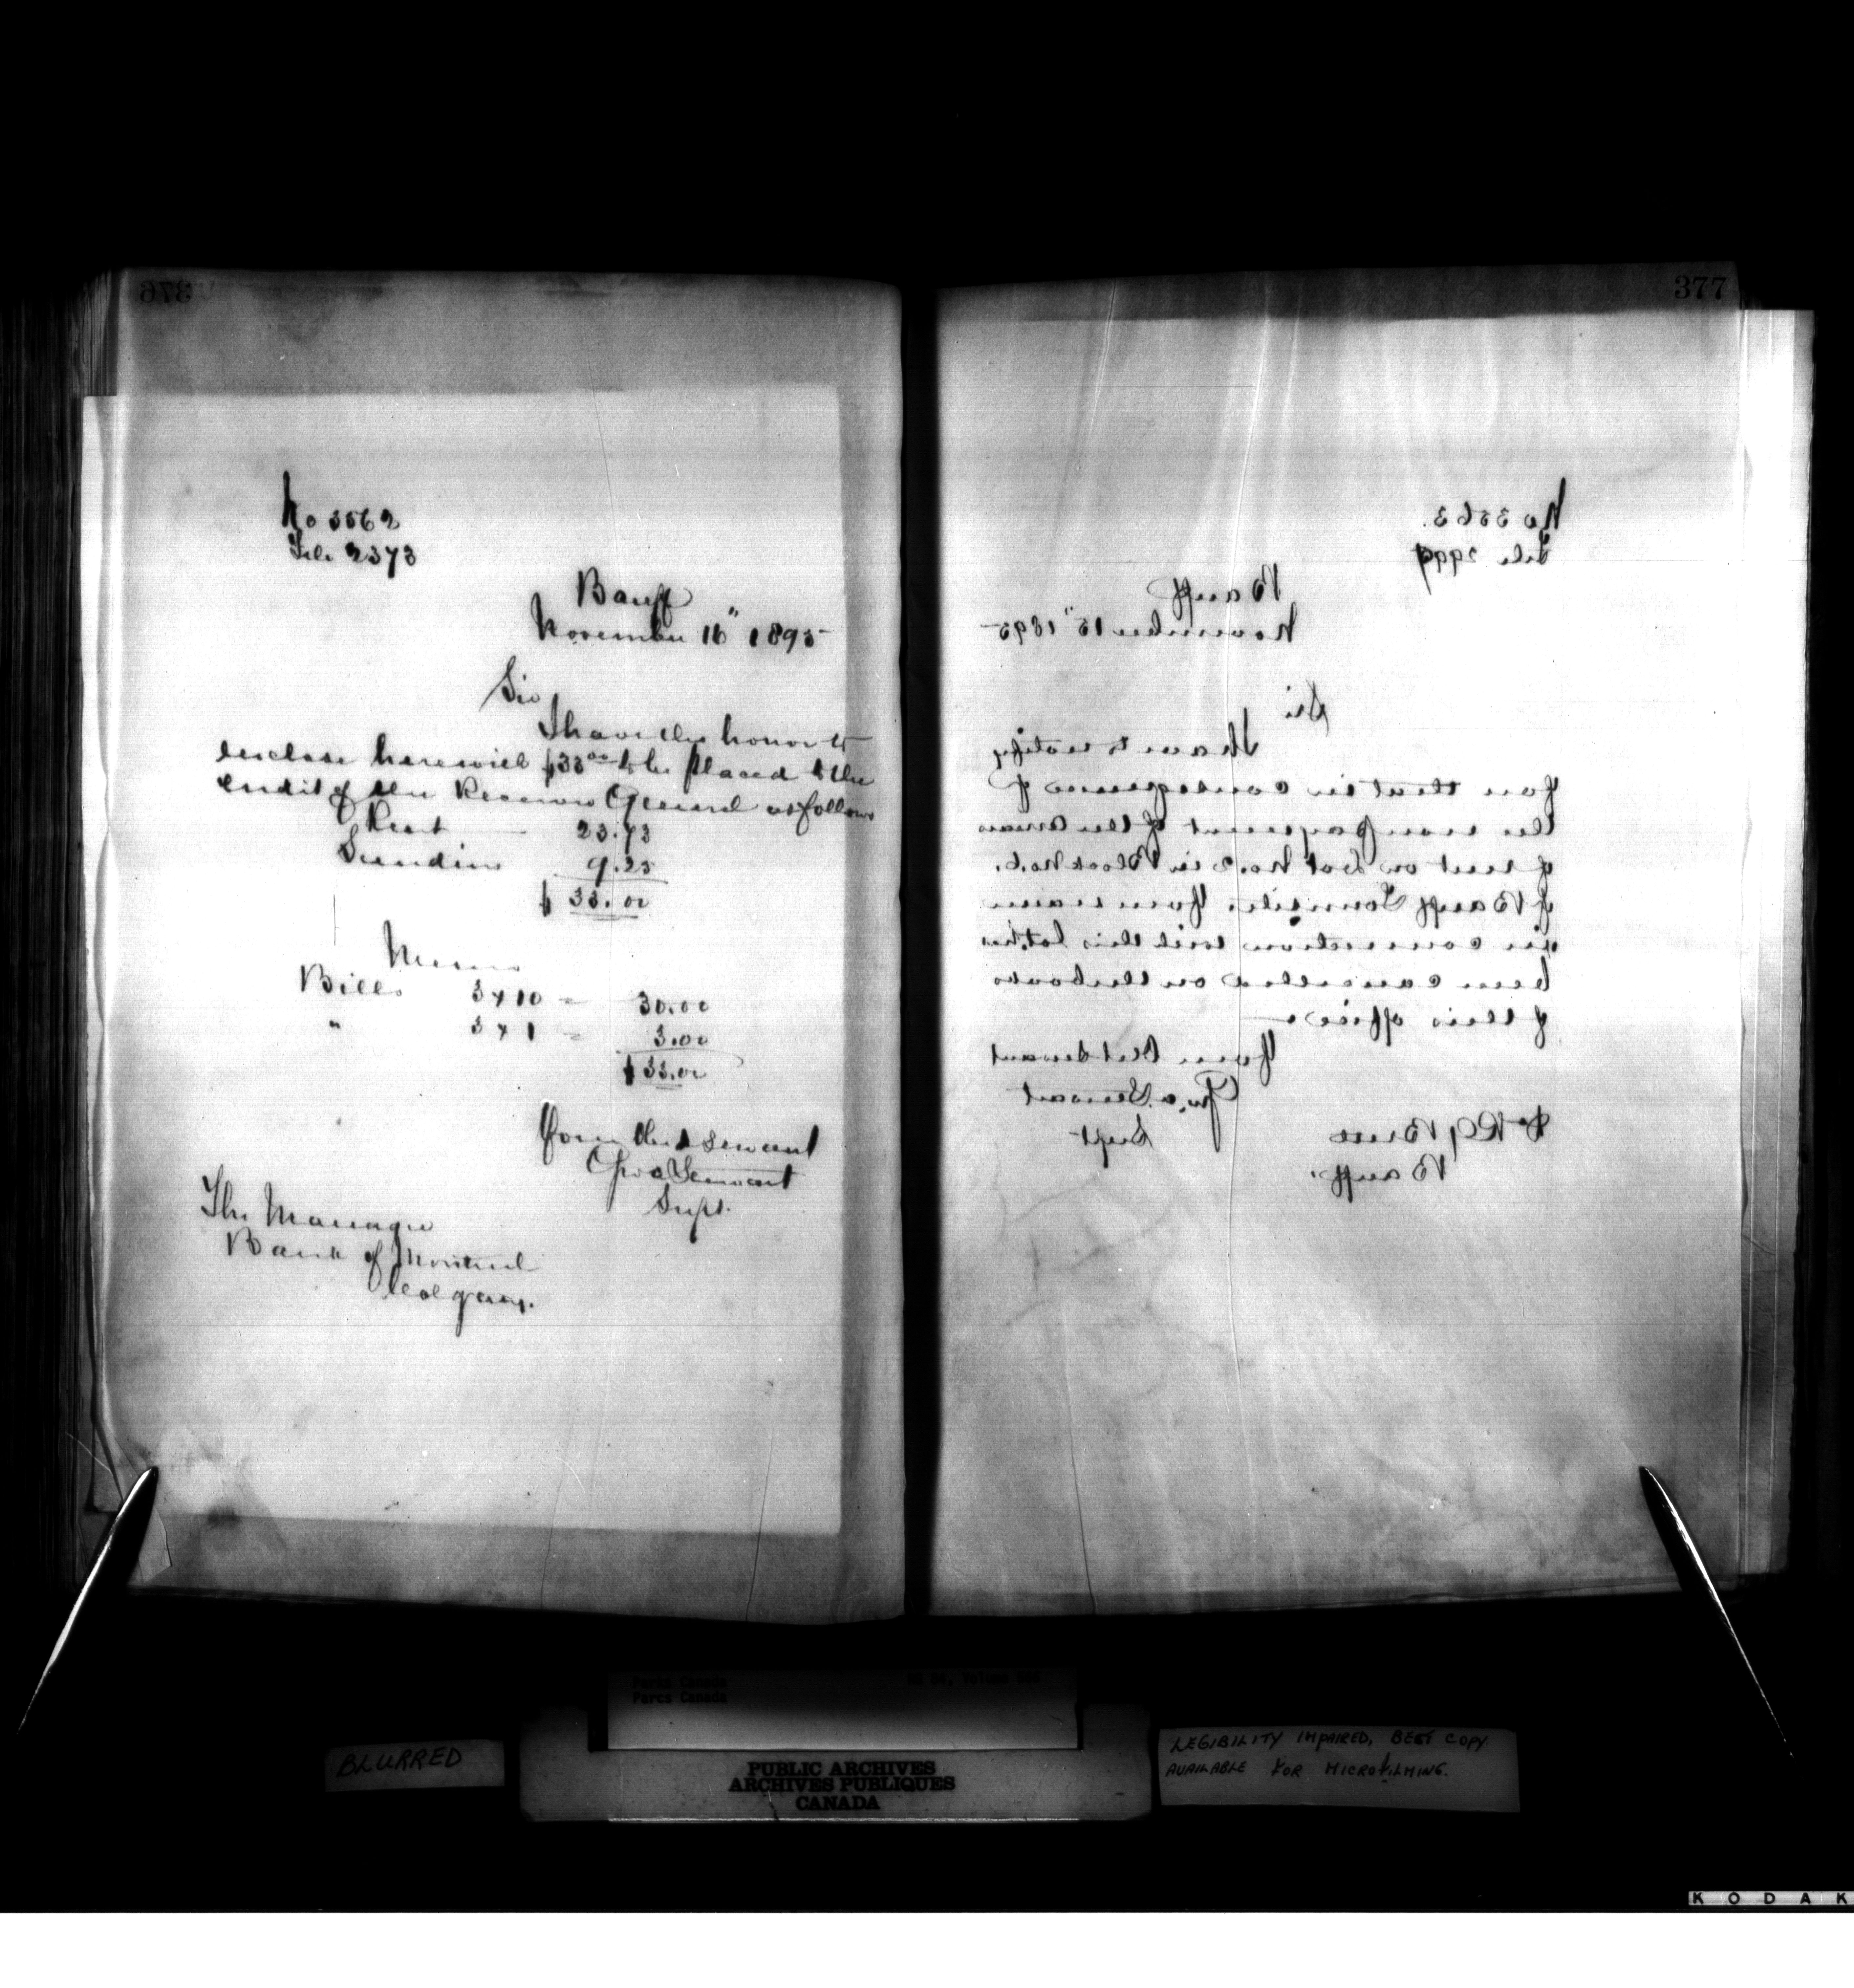 376
No 3562
File 2373
Banff
November 16" 1895
Sir
I have the honor to
enclose herewith $33.00 to be placed to the
credit of the Receiver General as follows
Rent 23.73
Sundries 9.25
$ 33.00
Memo
Bills 3 x 10 = 30.00
" 3 x 1 = 3.00
$ 33.00
Your Obdt servant
Geo A Stewart
Supt.
The Manager
Bank of Montreal
Calgary.
377
No 3563.
File
Banff
November 15" 1895
Sir
I have to notify
you that in consequence of
the non payment of the arrears
of rent on Lot No. 2 in Block No. 6.
of Banff Townsite. Your name
in connection with this lot has
been cancelled on the books
of this office.
Your Obdt Servant
Geo. A. Stewart
Supt
Dr R G Brett
Banff.
Parks Canada
Parcs Canada
BLURRED
PUBLIC ARCHIVES
ARCHIVES PUBLIQUES
CANADA
LEGIBILITY IMPAIRED, BEST COPY
AVAILABLE FOR MICROFILMING.
KODAK